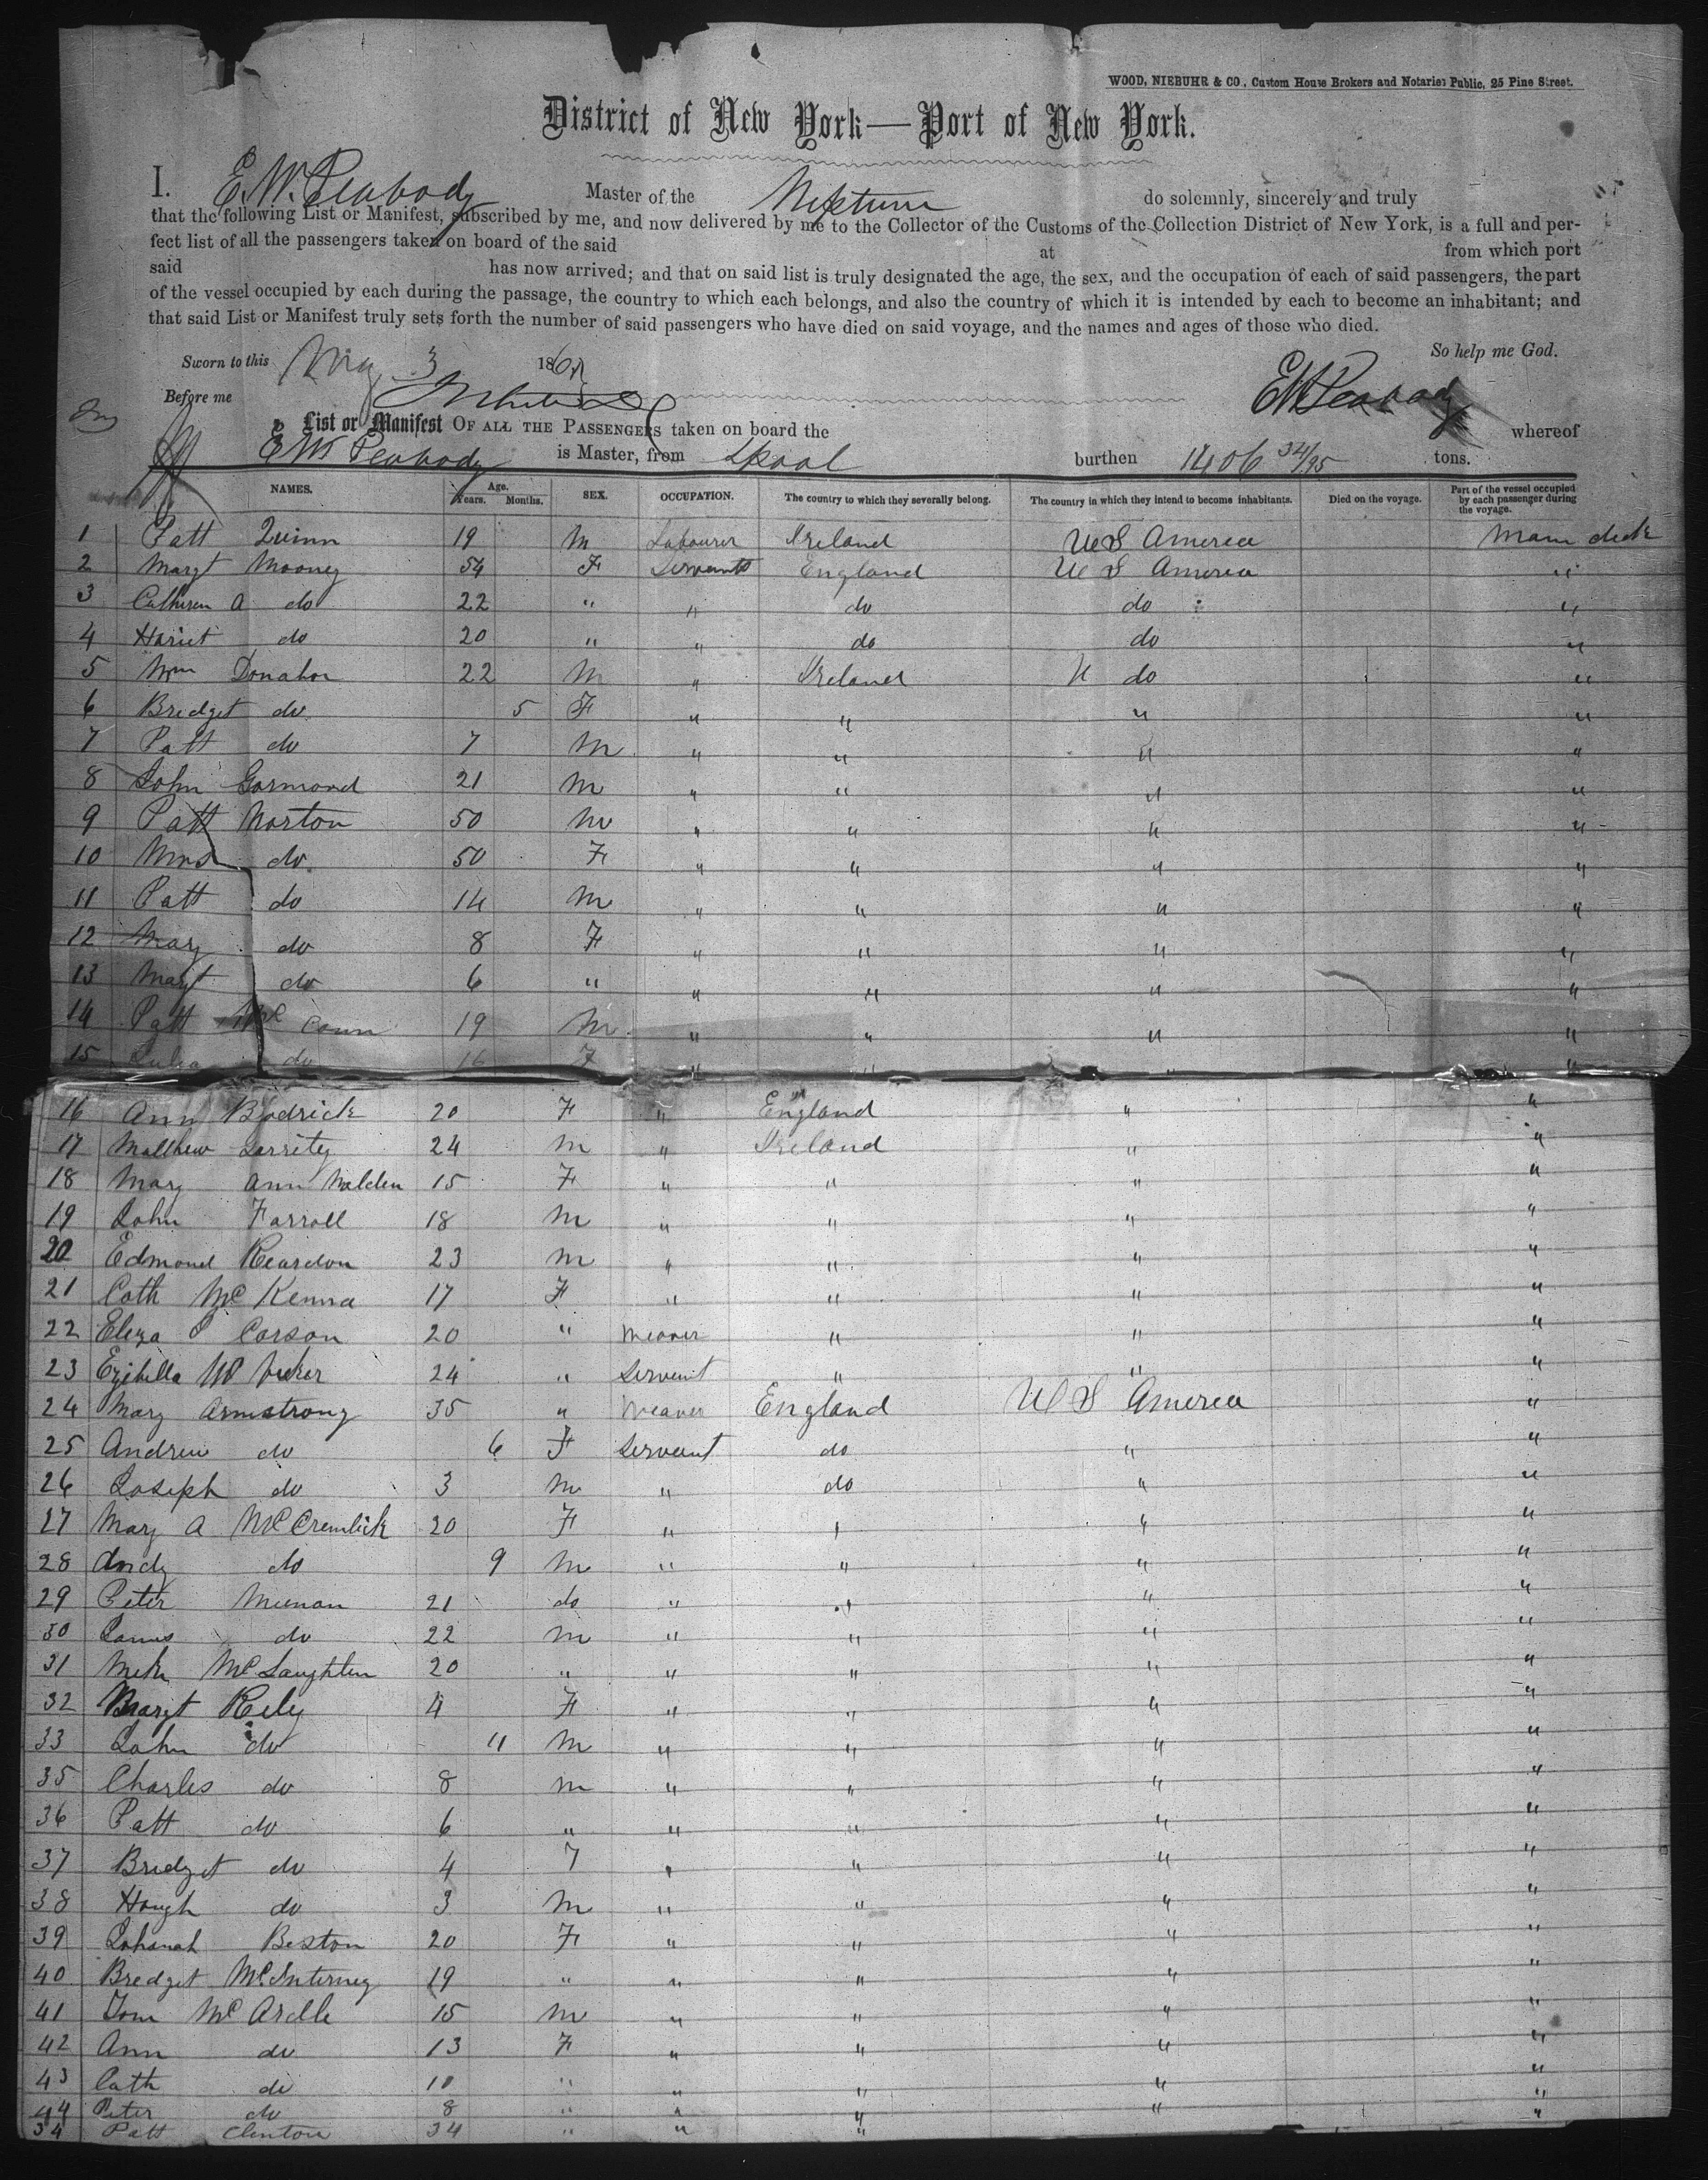 WOOD, NIEBUHR & CO., Custom House Brokers and Notaries Public, 25 Pine Street.
District of New York—Port of New York.
I. E.W. Peabody Master of the Neptune do solemnly, sincerely and truly
that the following List or Manifest, subscribed by me, and now delivered by me to the Collector of the Customs of the Collection District of New York, is a full and per-
fect list of all the passengers taken on board of the said at from which port
said has now arrived; and that on said list is truly designated the age, the sex, and the occupation of each of said passengers, the part
of the vessel occupied by each during the passage, the country to which each belongs, and also the country of which it is intended by each to become an inhabitant; and
that said List or Manifest truly sets forth the number of said passengers who have died on said voyage, and the names and ages of those who died.
So help me God.
Sworn to this May 3 186
Before me EW Peabody
List or Manifest OF ALL THE PASSENGERS taken on board the whereof
E W Peabody is Master, from Lpool burthen 1406 34/95 tons.
NAMES. Age. Years. Months. SEX. OCCUPATION. The country to which they severally belong. The country in which they intend to become inhabitants. Died on the voyage. Part of the vessel occupied by each passenger during the voyage.
1 Patt Quinn 19 M Labourer Ireland U S America Main deck
2 Margt Mooney 54 F Servants England U S America "
3 Catheren A do 22 " " do do "
4 Hariet do 20 " " do do "
5 Wm Donahoe 22 M " Ireland U do "
6 Bridget do 5 F " " " "
7 Patt do 7 M " " " "
8 John Gormond 21 M " " " "
9 Patt Norton 50 M " " " "
10 Mrs do 50 F " " " "
11 Patt do 14 M " " " "
12 Mary do 8 F " " " "
13 Margt do 6 " " " " "
14 Patt Mc Cann 19 M " " " "
15 Julia do 16 F " " " "
16 Ann Bodrick 20 F " England " "
17 Matthew Garrity 24 M " Ireland " "
18 Mary Ann Walden 15 F " " " "
19 John Farroll 18 M " " " "
20 Edmond Reardon 23 M " " " "
21 Cath McKenna 17 F " " " "
22 Eliza Carson 20 " Weaver " " "
23 Ezibella Mc 24 " Servent " " "
24 Mary Armstrong 35 " Weaver England U S America "
25 Andrew do 6 F Servent do " "
26 Joseph do 3 M " do " "
27 Mary A McCremlick 20 F " " " "
28 Andy do 9 M " " " "
29 Peter Meenan 21 do " " " "
30 James do 22 M " " " "
31 Mich McLaughlin 20 " " " " "
32 Margt Rely 4 F " " " "
33 John do 11 M " " " "
35 Charles do 8 M " " " "
36 Patt do 6 " " " " "
37 Bridget do 4 F " " " "
38 Hough do 3 M " " " "
39 Johanah Beston 20 F " " " "
40 Bredget McInterney 19 " " " " "
41 Tom McArdle 15 M " " " "
42 Ann do 13 F " " " "
43 Cath do 10 " " " " "
44 Peter do 8 " " " " "
34 Patt Clinton 34 " " "